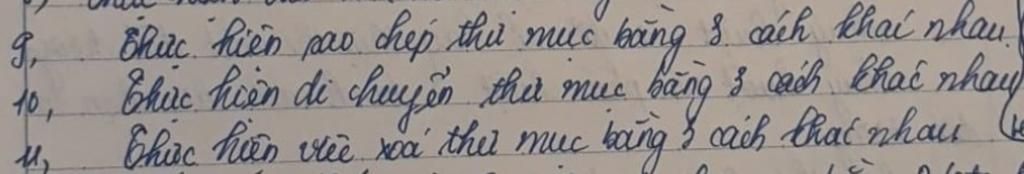 9, Thực hiện sao chép thư mục bằng 3 cách khác nhau.
10, Thực hiện di chuyển thư mục bằng 3 cách khác nhau
11, Thực hiện việc xoá thư mục bằng 3 cách khác nhau